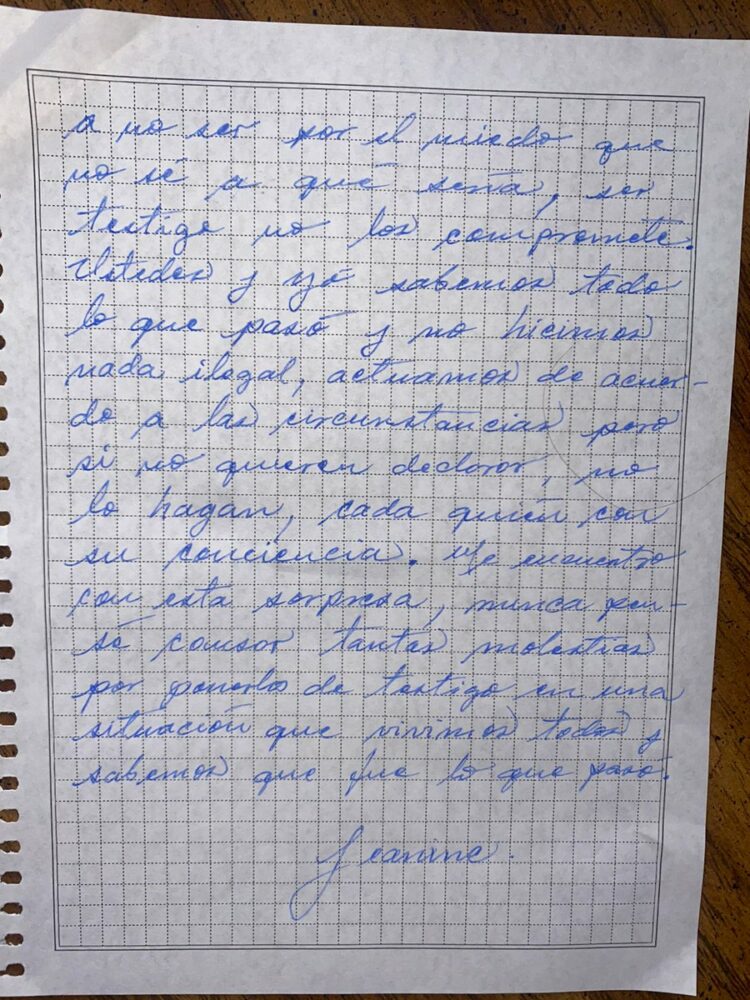 a no ser por el miedo que
no sé a qué sería, ser
testigo no los compromete.
Ustedes y yo sabemos todo
lo que pasó y no hicimos
nada ilegal, actuamos de acuer-
do a las circunstancias pero
si no quieren declarar, no
lo hagan, cada quién con
su conciencia. Me encuentro
con esta sorpresa, nunca pen-
sé causar tantas molestias
por ponerlos de testigo en una
situación que vivimos todos y
sabemos que fue lo que pasó.
Jeanine.